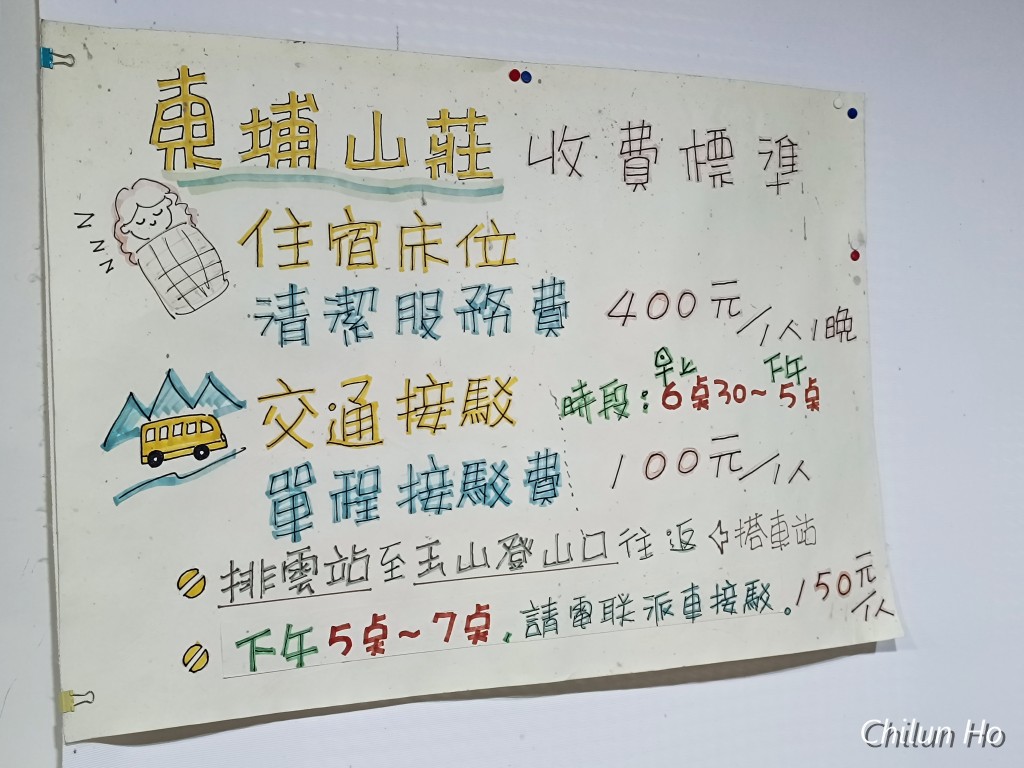 東埔山莊 收費標準
Z Z Z
住宿床位
清潔服務費 400元/1人1晚
早上 下午
交通接駁 時段:6桌30~5桌
單程接駁費 100元/1人
排雲站至玉山登山口往返⇦搭車站
下午5桌~7桌,請電联派車接駁。150元/人
Chilun Ho